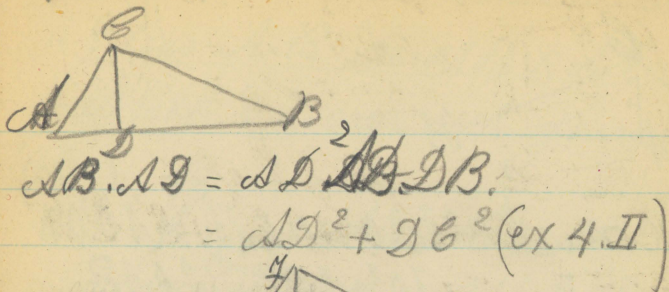 C
A B
D
AB.AD = AD² AD.DB.
= AD² + DC² (ex 4.II)
7